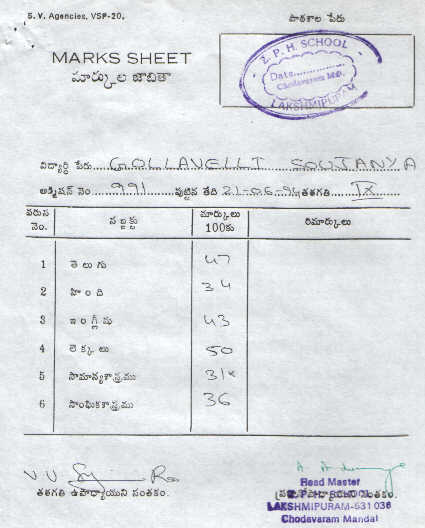 S. V. Agencies, VSP-20.
పాఠశాల పేరు
MARKS SHEET
మార్కుల జాబితా
Z. P. H. SCHOOL
Date..............
Chodavaram Mdl.
LAKSHMIPURAM
విద్యార్థి పేరు GOLLAVELLI SOUJANYA
అడ్మిషన్ నెం 991 పుట్టిన తేది 21-06-94 తరగతి IX
వరుస నెం. సబ్జక్టు మార్కులు 100కు రిమార్కులు
1 తెలుగు 47
2 హింది 34
3 ఇంగ్లీషు 43
4 లెక్కలు 50
5 సామాన్యశాస్త్రము 31*
6 సాంఘికశాస్త్రము 36
తరగతి ఉపాధ్యాయుని సంతకం.
సంతకం.
Head Master
Z. P. H. School
LAKSHMIPURAM-531 036
Chodavaram Mandal